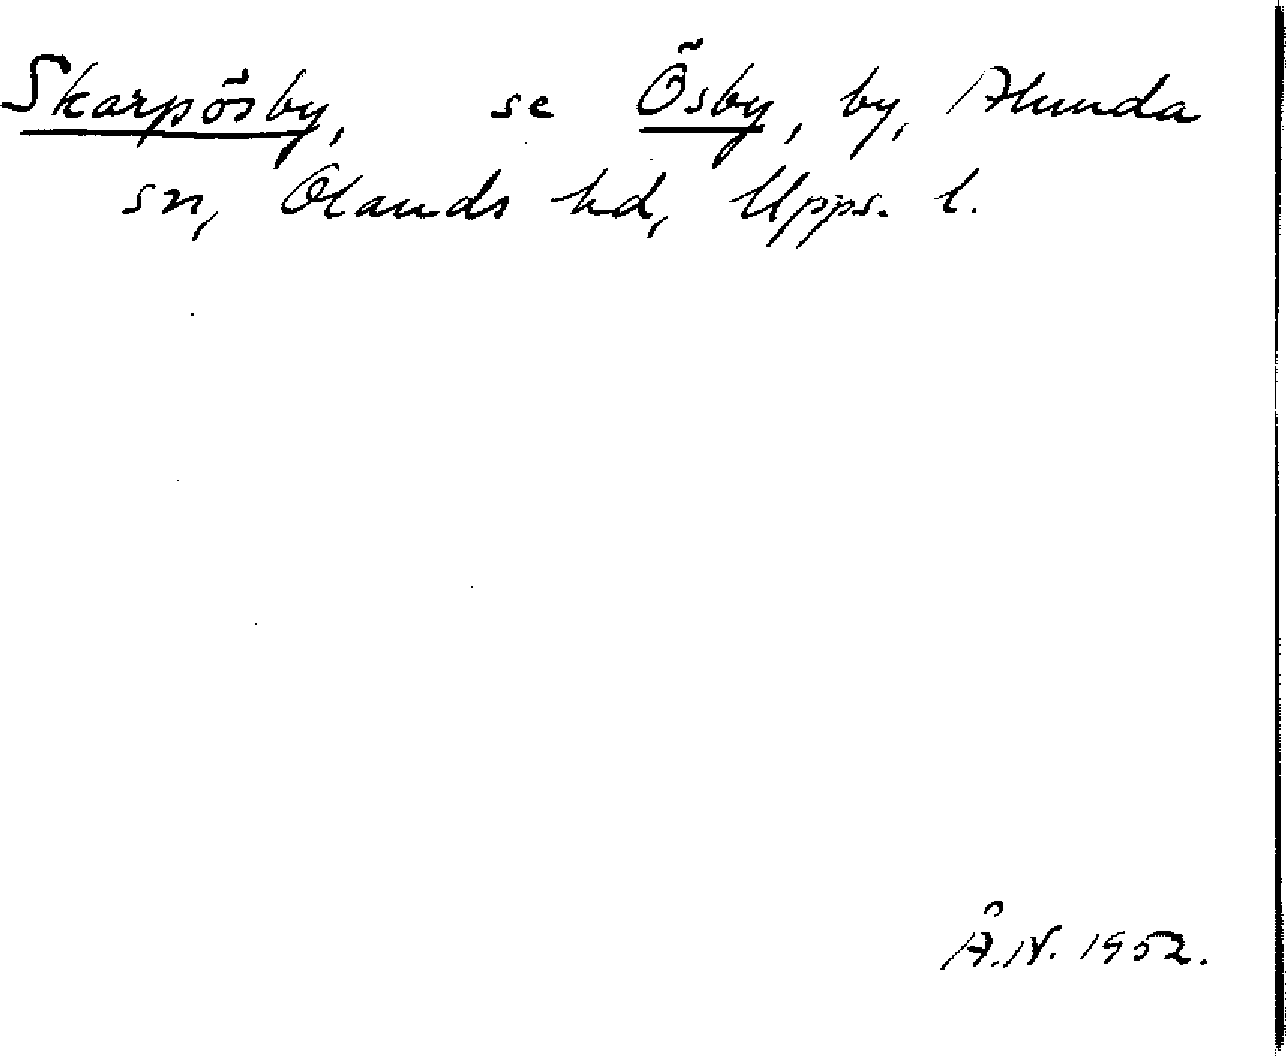 Skarpösby, se Ösby, by, Alunda
sn, Olands hd, Upps. l.
Å.N. 1952.